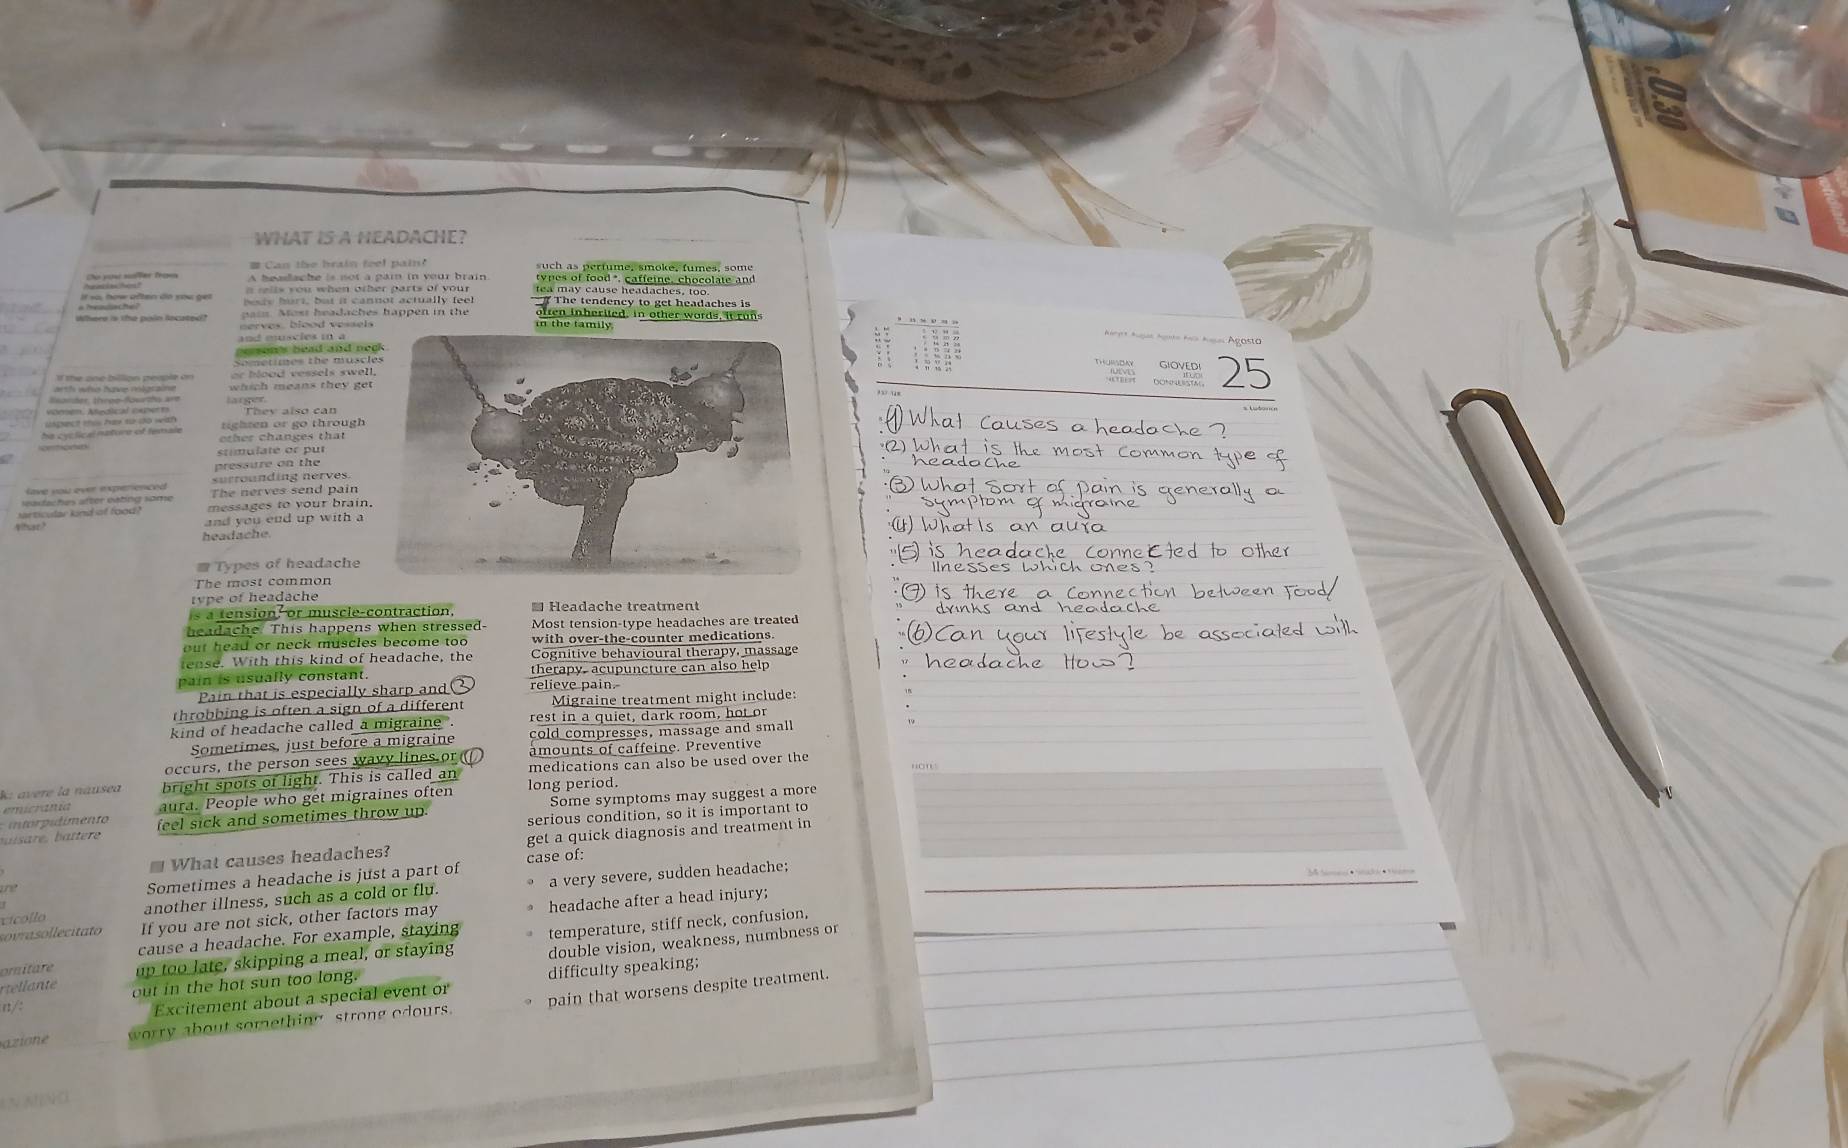 WHAT IS A HEADACHE?
Do you suffer from
headaches?
If so, how often do you get
a headache?
Where is the pain located?
If the one billion people on
earth who have migraine
disorder, three-fourths are
women. Medical experts
suspect this has to do with
he cyclical nature of female
Have you ever experienced
headaches after eating some
particular kind of food?
What?
k: avere la nausea
emicrania
intorpidimento
battere
sovrasollecitato
■ Can the brain feel pain?
A headache is not a pain in your brain.
It tells you when other parts of your
body hurt, but it cannot actually feel
pain. Most headaches happen in the
nerves, blood vessels
and muscles in a
person's head and neck.
Sometimes the muscles
or blood vessels swell,
which means they get
larger.
They also can
tighten or go through
other changes that
stimulate or put
pressure on the
surrounding nerves.
The nerves send pain
messages to your brain,
and you end up with a
headache.
■ Types of headache
The most common
type of headache
is a tension, or muscle-contraction,
headache. This happens when stressed-
out head or neck muscles become too
tense. With this kind of headache, the
pain is usually constant.
Pain that is especially sharp and ③
throbbing is often a sign of a different
kind of headache called a migraine .
Sometimes, just before a migraine
occurs, the person sees wavy lines or
bright spots of light. This is called an
aura. People who get migraines often
feel sick and sometimes throw up.
■ What causes headaches?
Sometimes a headache is just a part of
another illness, such as a cold or flu.
If you are not sick, other factors may
cause a headache. For example, staying
up too late, skipping a meal, or staying
out in the hot sun too long.
Excitement about a special event or
worry about something, strong odours,
such as perfume, smoke, fumes, some
types of food*, caffeine, chocolate and
tea may cause headaches, too.
The tendency to get headaches is
often inherited, in other words, it runs
in the family.
■ Headache treatment
Most tension-type headaches are treated
with over-the-counter medications.
Cognitive behavioural therapy, massage
therapy, acupuncture can also help
relieve pain.
Migraine treatment might include:
rest in a quiet, dark room, hot or
cold compresses, massage and small
amounts of caffeine. Preventive
medications can also be used over the
long period.
Some symptoms may suggest a more
serious condition, so it is important to
get a quick diagnosis and treatment in
case of:
• a very severe, sudden headache;
• headache after a head injury;
• temperature, stiff neck, confusion,
double vision, weakness, numbness or
difficulty speaking;
• pain that worsens despite treatment.
Agosto
THURSDAY GIOVEDI 25
JUEVES JEUDI
DONNERSTAG
237-128
s. Ludovico
(1) What causes a headache?
(2) What is the most common type of
headache
(3) What sort of pain is generally a
symptom of migraine
(4) What Is an aura
(5) is headache connected to other
llnesses which ones?
(7) is there a connection between Food/
drinks and headache
(6) Can your lifestyle be associated with
headache How?
17
18
19
NOTES
0.30